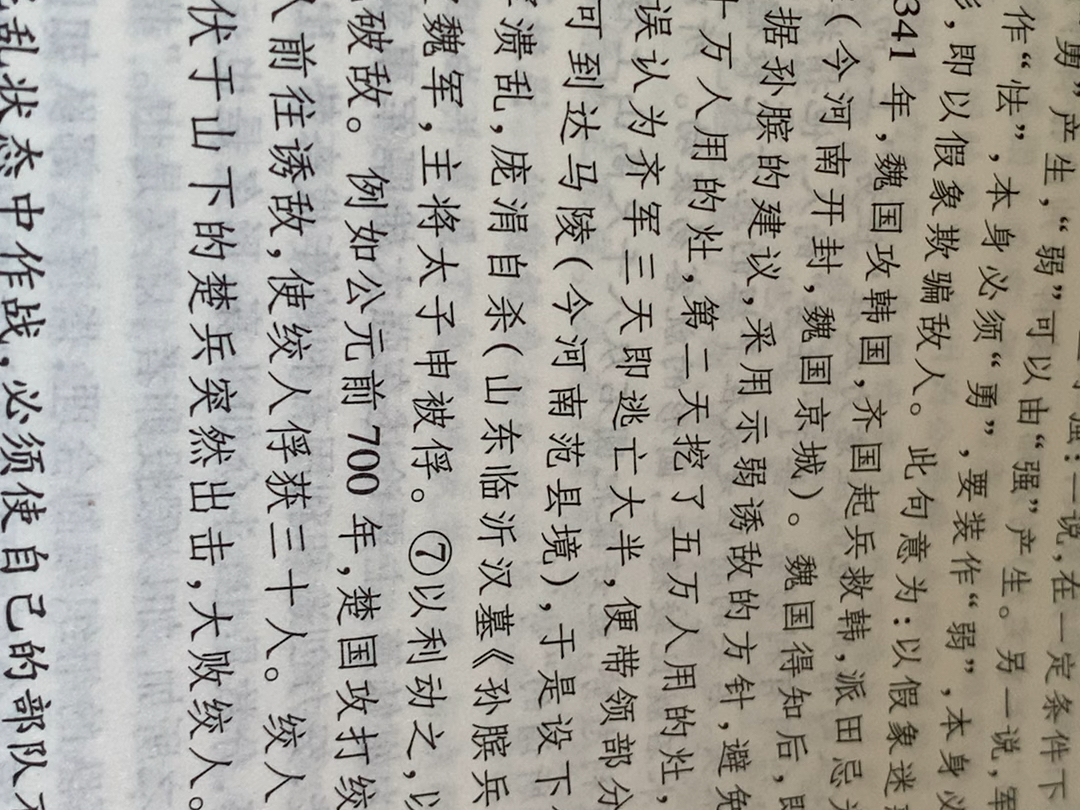 强：一说，在一定条件下
勇”产生，“弱”可以由“强”产生。另一说，军
作“怯”，本身必须“勇”，要装作“弱”，本身必
，即以假象欺骗敌人。此句意为：以假象迷
341 年，魏国攻韩国，齐国起兵救韩，派田忌
（今河南开封，魏国京城）。魏国得知后，即
据孙膑的建议，采用示弱诱敌的方针，避免
十万人用的灶，第二天挖了五万人用的灶，
误认为齐军三天即逃亡大半，便带领部分
可到达马陵（今河南范县境），于是设下
溃乱，庞涓自杀（山东临沂汉墓《孙膑兵
魏军，主将太子申被俘。⑦以利动之，以
破敌。例如公元前700年，楚国攻打绞
人前往诱敌，使绞人俘获三十人。绞人
伏于山下的楚兵突然出击，大败绞人。
乱状态中作战，必须使自己的部队